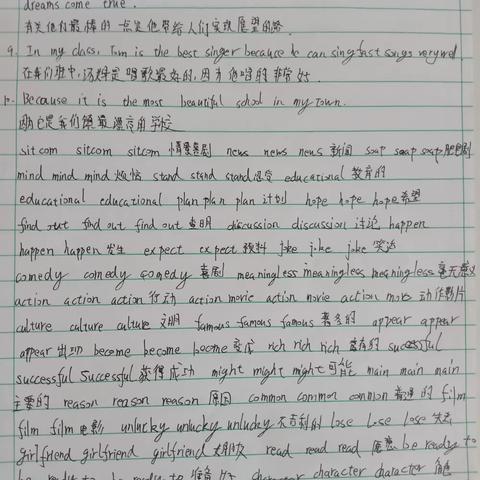 dreams come true.
有关他们最棒的一点是他带给人们实现愿望的路.
9. In my class, Tom is the best singer because he can sing fast songs very well.
在我们班中,汤姆是唱歌最好的,因为他唱的非常好.
10. Because it is the most beautiful school in my town.
它是我们镇最漂亮的学校
sitcom sitcom sitcom 情景喜剧 news news news 新闻 soap soap soap 肥皂剧
mind mind mind 烦恼 stand stand stand 忍受 educational 教育的
educational educational plan plan plan 计划 hope hope hope 希望
find out find out find out 查明 discussion discussion 讨论 happen
happen happen 发生 expect expect 预料 joke joke joke 笑话
comedy comedy comedy 喜剧 meaningless meaningless meaningless 毫无意义
action action action 行动 action movie action movie action movie 动作影片
culture culture culture 文明 famous famous famous 著名的 appear appear
appear 出现 become become become 变成 rich rich rich 富有的 successful
successful successful 获得成功 might might might 可能 main main main
主要的 reason reason reason 原因 common common common 普通的 film
film film 电影 unlucky unlucky unlucky 不吉利的 lose lose lose 失去
girlfriend girlfriend girlfriend 女朋友 read read read 愿意 be ready to
be ready to be ready to 准备 character character character 角色